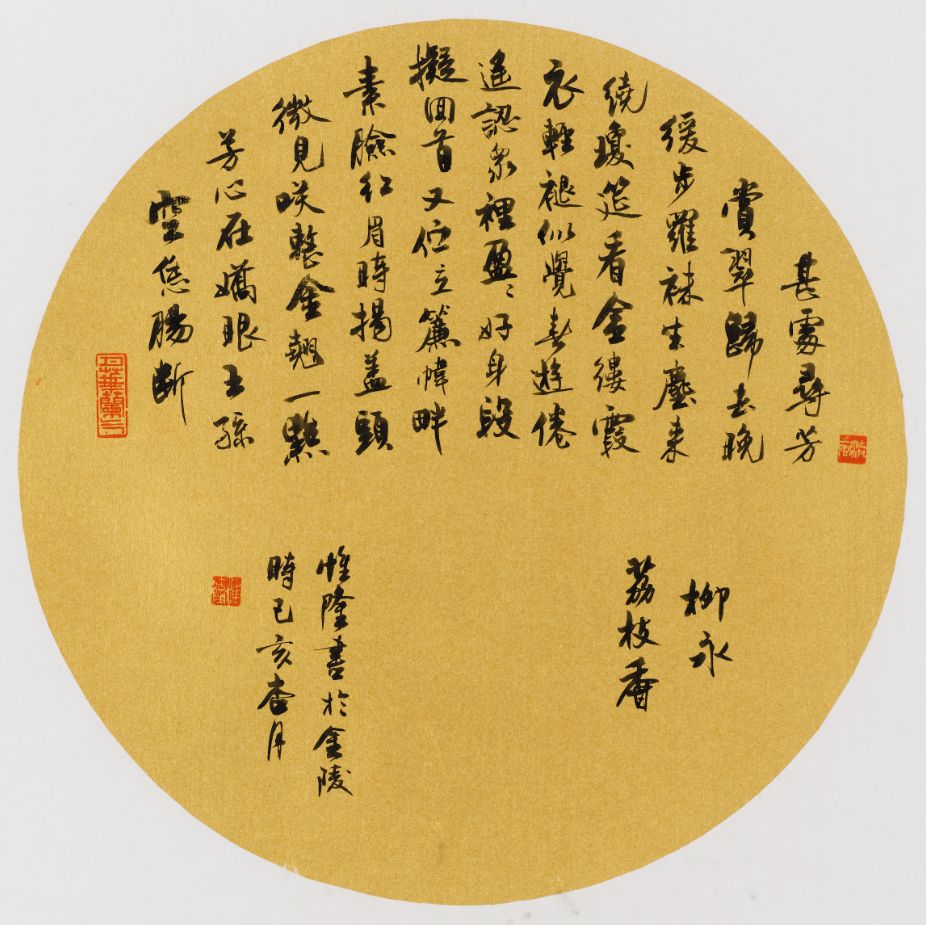 甚處尋芳
賞翠歸去晚
緩步羅袜生塵来
繞瓊筵看金縷霞
衣輕褪似覺春遊倦
遙認衆裡盈〻好身段
擬回首又佇立簾幃畔
素臉红眉時揭蓋頭
微見咲整金翹一點
芳心在嬌眼王孫
空恁腸斷
柳永
荔枝香
惟隆書於金陵
時己亥杏月